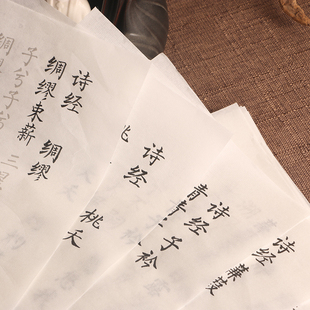 诗经 绸缪
绸缪束薪
子兮子兮
诗经 桃夭
诗经 子衿
青青
诗经 蒹葭